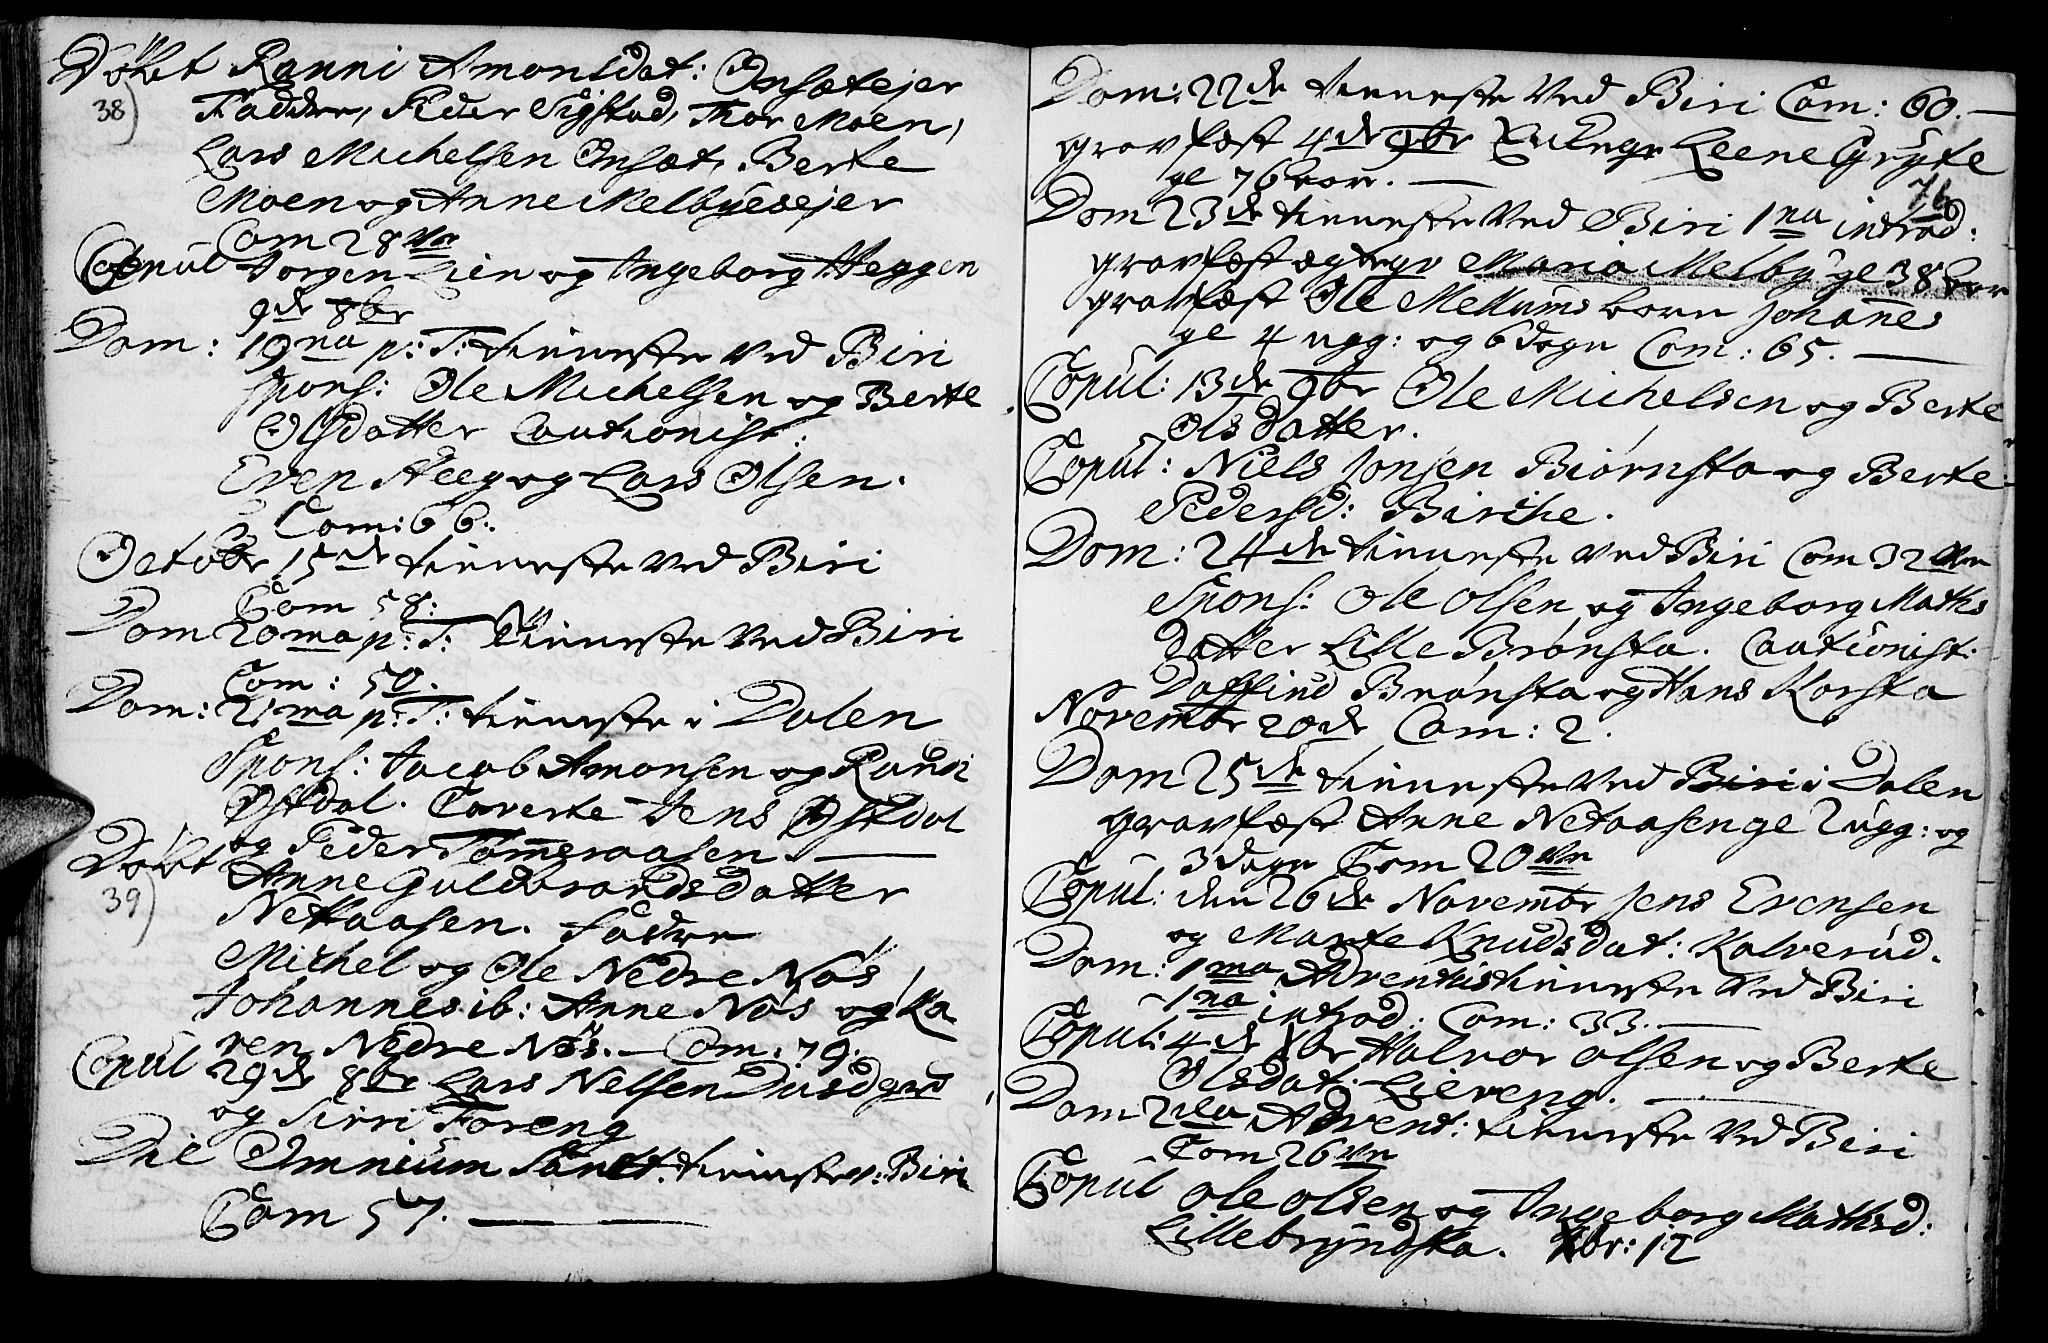 Døbt Ranni Amonsdat: Onsætejer
38) Faddre, Peder Sigstad, Thor Moen,
Lars Michelsen Onsæt, Berte
Moen og Anne Melbyesejer
Com 28
Copul Jørgen Lien og Ingeborg Heggen
9de 8br
Dom: 19na p: T: tieneste ved Biri
Spons: Ole Michelsen og Berte
Olsdatter Cautionist:
Even Heeg og Lars Olsen.
Com: 66.
October 15de tieneste ved Biri
Com 58:
Dom 20ma p: T: tieneste ved Biri
Com: 50.
Dom: 21ma p: T: tieneste i Dalen
Spons: Jacob Amonsen og Randi
Østdal. Caverte Jens Østdal
og Peder Tømeraasen.
Døbt Anne Guldbrandsdatter
39) Nettaasen. Fadre
Michel og Ole Nedre Nøs
Johannes ib: Anne Nøs og Ka
ren Nedre Nøs. Com: 79.
Copul 29de 8br Lars Nelsen
og Sirri Foreng
Die Omnium Sanct: tieneste v: Biri
Com 57.
Dom: 22de tieneste ved Biri Com: 60.
gravfæst 4de 9br Leene Gryte
gl 76 aar.
76
Dom 23de tieneste ved Biri 1na introd:
gravfæst Maria Melby gl 38 aar
gravfæst Ole Mellums barn Johanes
gl 4 ugg: og 6 dage Com: 65.
Copul: 13de 9br Ole Michelsen og Berte
Olsdatter.
Copul: Niels Jonsen Biørnsta og Berte
Pedersd: Birche.
Dom: 24de tieneste ved Biri Com 32
Spons: Ole Olsen og Ingeborg Maths
datter Lille Brønsta. Cautionist:
Daffind Brønsta og Hans Korsta
Novembr 20de Com: 2.
Dom 25de tieneste ved Biri i Dalen
gravfæst Anne Netaasen gl 2 ugg: og
3 dage Com 20
Copul: den 26de Novembr Jens Evensen
og Marte Knudsdat: Kalverud.
Dom: 1ma Adventus tieneste ved Biri
1na introd: Com: 33.
Copul: 4de Xbr Halvor Olsen og Berte
Olsdat: Liereng.
Dom 2da Advent: tieneste ved Biri
Com 26
Copul Ole Olsen og Ingeborg Mathsd:
Lillebryndsta. Xbr: 12